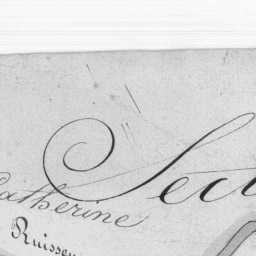 Sect
Catherine
Ruisseau